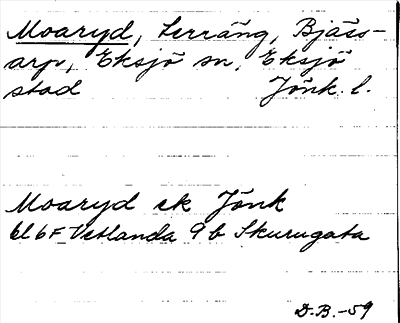 Moaryd, Terräng, Bjäss-
arp, Eksjö sn, Eksjö
stad Jönk. l.
Moaryd ek Jönk
bl 6F Vetlanda 9b Skurugata
D.B.-59